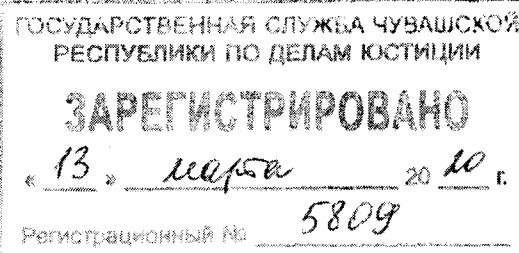 ГОСУДАРСТВЕННАЯ СЛУЖБА ЧУВАШСКОЙ
РЕСПУБЛИКИ ПО ДЕЛАМ ЮСТИЦИИ
ЗАРЕГИСТРИРОВАНО
« 13 » марта 20 20 г.
Регистрационный № 5809